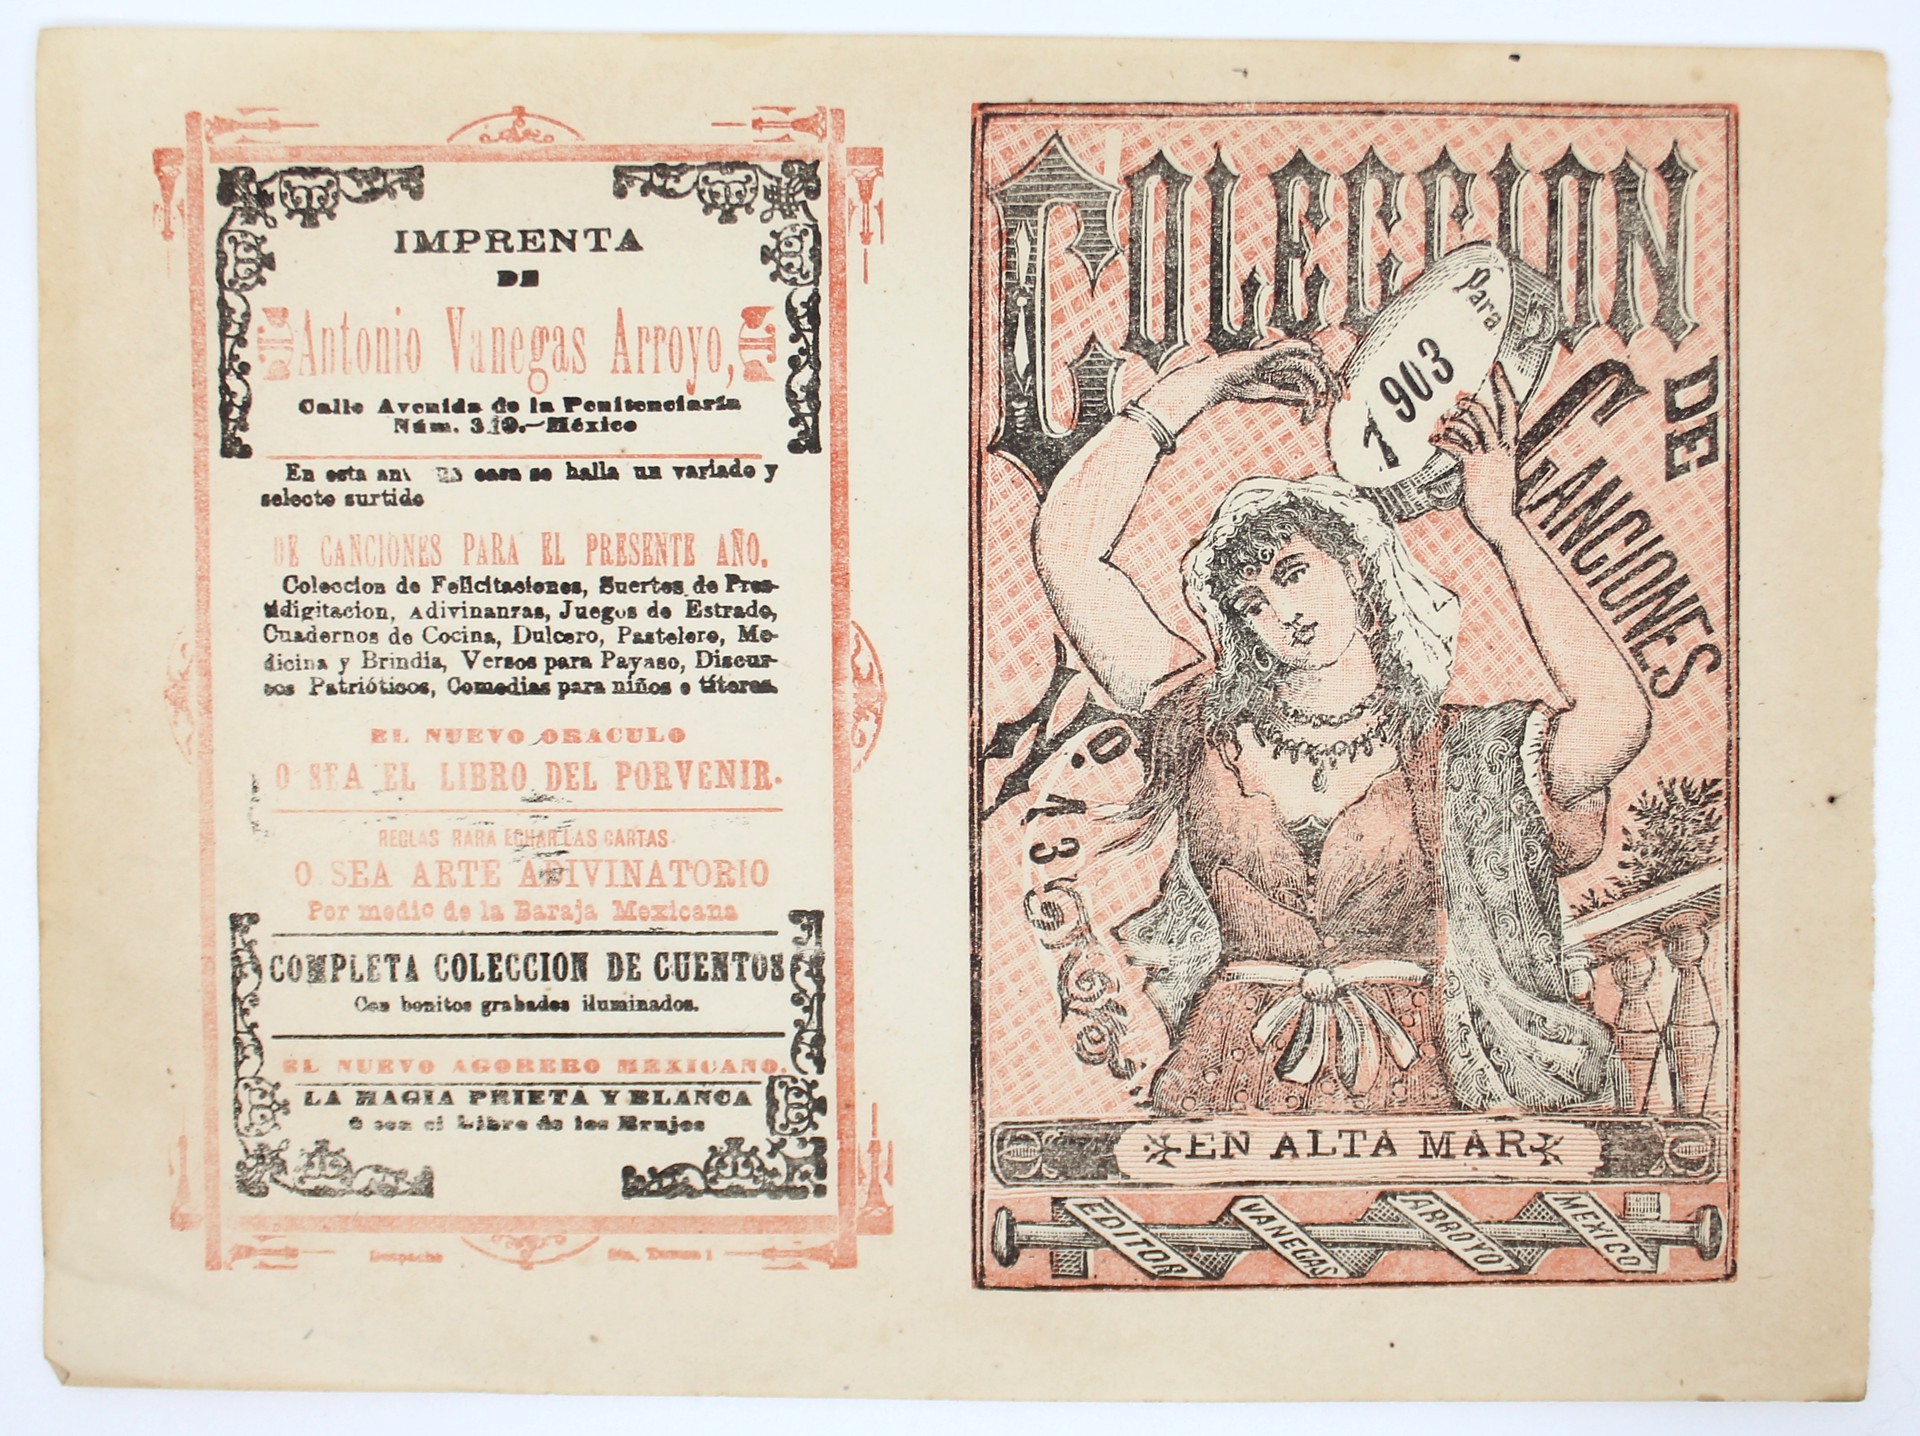 IMPRENTA
DE
Antonio Vanegas Arroyo,
Calle Avenida de la Penitenciaría
Núm. 310.—México
En esta casa se halla un variado y
selecto surtido
DE CANCIONES PARA EL PRESENTE AÑO.
Coleccion de Felicitaciones, Suertes de Pres-
tidigitacion, Adivinanzas, Juegos de Estrado,
Cuadernos de Cocina, Dulcero, Pastelero, Me-
dicina y Brindis, Versos para Payaso, Discur-
sos Patrióticos, Comedias para niños o títeres.
EL NUEVO ORACULO
O SEA EL LIBRO DEL PORVENIR.
REGLAS RARA ECHAR LAS CARTAS.
O SEA ARTE ADIVINATORIO
Por medio de la Baraja Mexicana
COMPLETA COLECCION DE CUENTOS
Con bonitos grabados iluminados.
EL NUEVO AGORERO MEXICANO.
LA MAGIA PRIETA Y BLANCA
o sea el Libro de los Brujos
Despacho
COLECCION
DE
CANCIONES
Para
1903
13
EN ALTA MAR
EDITOR VANEGAS ARROYO MEXICO